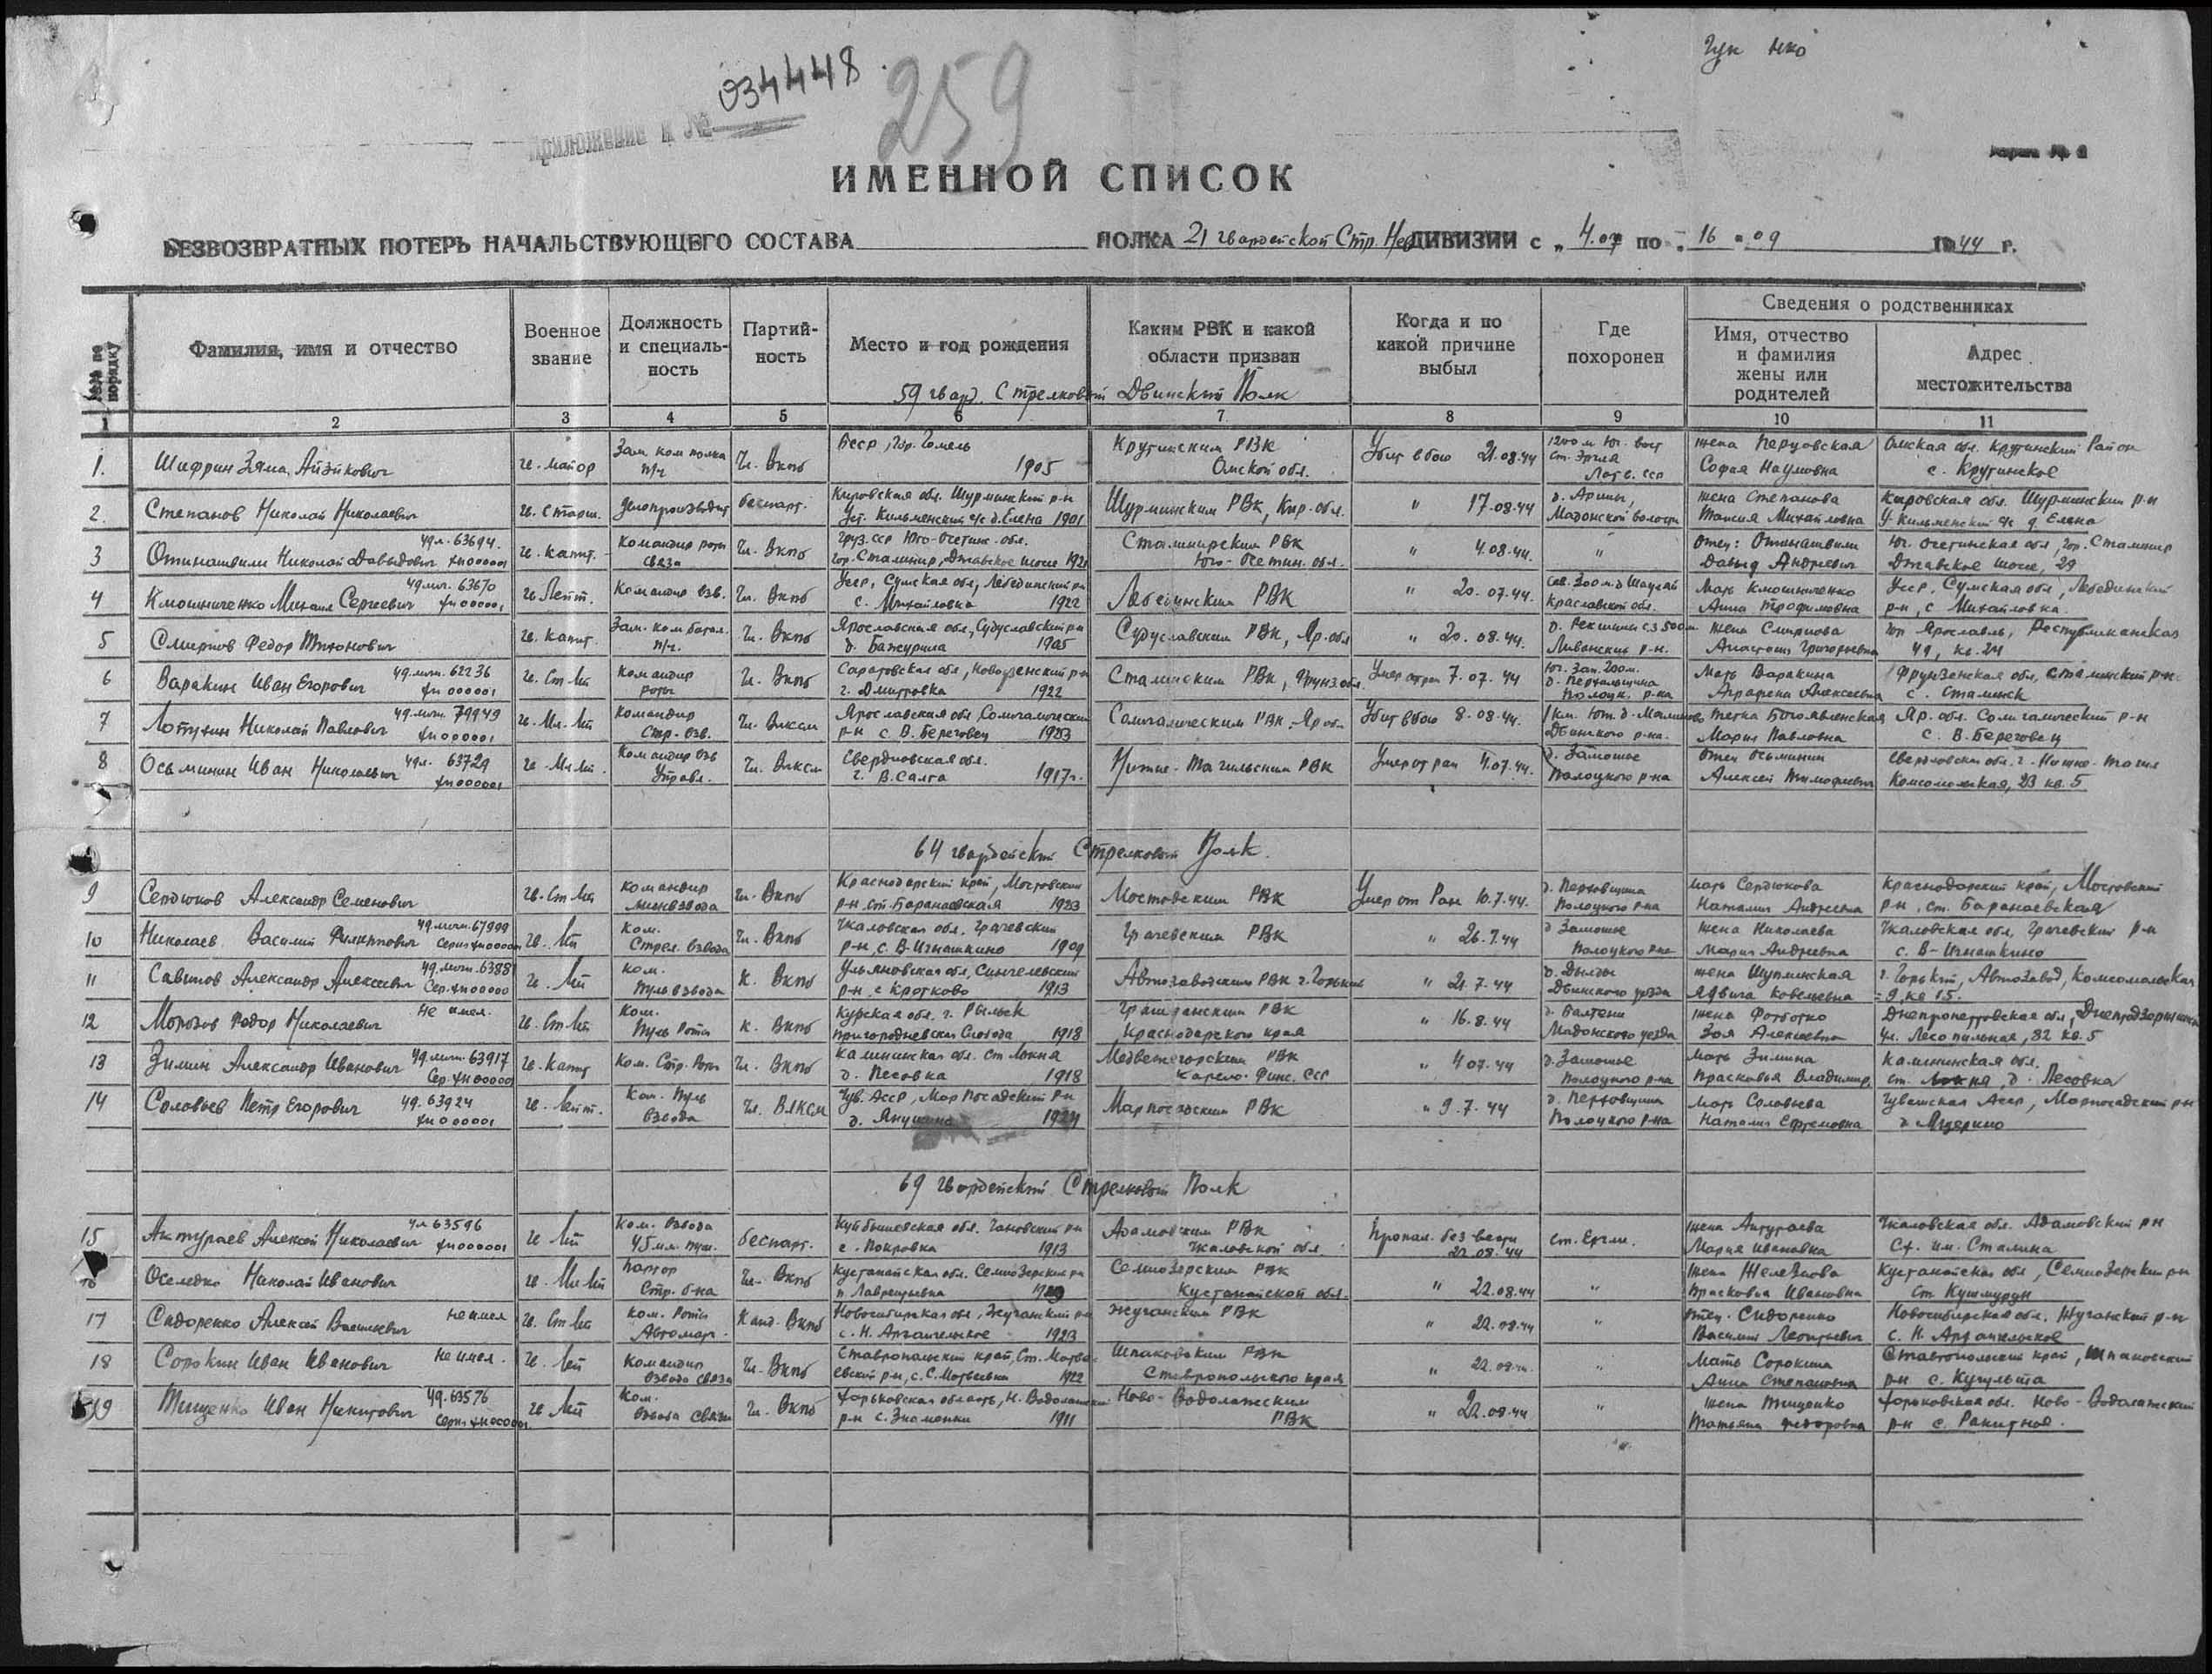 Гук НКО
034448
Приложение к №
259
ИМЕННОЙ СПИСОК
БЕЗВОЗВРАТНЫХ ПОТЕРЬ НАЧАЛЬСТВУЮЩЕГО СОСТАВА ПОЛКА 21 гвардейской Стр. Нев ДИВИЗИИ с „ 4.07 по „ 16 " 09 1944 г.
№№ по порядку
Фамилия, имя и отчество
Военное звание
Должность и специальность
Партийность
Место и год рождения
Каким РВК и какой области призван
Когда и по какой причине выбыл
Где похоронен
Сведения о родственниках
Имя, отчество и фамилия жены или родителей
Адрес местожительства
59 гвард. Стрелковый Двинский Полк
1 2 3 4 5 6 7 8 9 10 11
1. Шифрин Зяма Айзикович гв. майор Зам. ком полка п/ч Чл. Вкпб Бсср, гор. Гомель 1905 Крутинским РВК Омской обл. Убит в бою 21.08.44 1200 м юг. вост ст. Эргля Латв. сср жена Перцовская София Наумовна Омская обл. Крутинский Район с. Крутинское
2. Степанов Николай Николаевич гв. Старш. делопроизводит беспарт. Кировская обл. Шурминский р-н Уст. Кильменский с/с д. Елена 1901 Шурминским РВК, Кир. обл. " 17.08.44 Мадонской волости жена Степанова Таисия Михайловна Кировская обл. Шурминский р-н У-Кильменский с/с д. Елена
3 Отинашвили Николай Давыдович уд.л. 63694. ЧН000001 гв. капит. Командир роты связи Чл. Вкпб Груз. сср Юго-Осетинс. обл. гор. Сталинир, Джавское шоссе 192 Сталинирским РВК Юго-Осетин. обл. " 4.08.44. " Отец: Отинашвили Давыд Андреевич Юг. Осетинская обл, гор. Сталинир Джавское шоссе, 29
4 Клюшниченко Михаил Сергеевич уд.лич. 63670 ЧН00000, гв Лейт. Командир взв. Чл. Вкпб Усср, Сумская обл, Лебединский рн с. Михайловка 1922 Лебединским РВК " 20.07.44. Краславской обл. Мать Клюшниченко Анна Трофимовна Усср, Сумская обл, Лебединский р-н, с Михайловка.
5 Смирнов Федор Тихонович гв. капит. Зам. ком батал. п/ч. Чл. Вкпб Ярославская обл, Судуславский рн д. Бажурина 1905 Судуславским РВК, Яр. обл " 20.08.44. Ливанский р-н. жена Смирнова Анастасия Григорьевна гор Ярославль, Республиканская 49, кв. 24
6 Варакин Иван Егорович уд.лич. 62236 ЧН 000001 гв. Ст Лт Командир роты Чл. Вкпб Саратовская обл, Новоузенский р-н г. Дмитровка 1922 Сталинским РВК, Фрунз. обл. Умер от ран 7.07.44 Юг. Зап. 200м. Полоцк. р-на Мать Варакина Аграфена Алексеевна Фрунзенская обл, Сталинский р-н с. Сталинск
7 Лопухин Николай Павлович уд.лич. 79949 ЧН000001 гв. Мл. Лт Командир Стр. взв. Чл. Влксм Ярославская обл Солигаличский р-н с В. Береговец 1923 Солигаличским РВК, Яр обл. Убит в бою 8.08.44. 1 км. Двинского р-на. тетка Богоявленская Мария Павловна Яр. обл. Солигаличский р-н с. В. Береговец
8 Осьминин Иван Николаевич уд.л. 63729 ЧН000001 гв Мл Лт. Командир взв Управл. Чл. Влксм Свердловская обл. г. В. Салга 1917г. Нижне-Тагильским РВК Умер от ран 4.07.44. д. Замошье Полоцкого р-на Отец Осьминин Алексей Тимофеевич Свердловская обл. г. Нижне-Тагил Комсомольская, 23 кв. 5
64 гвардейский Стрелковый Полк.
9 Сердюков Александр Семенович гв. Ст Лт Командир Минвзвода Чл. Вкпб Краснодарский край, Мостовский р-н ст. Баранаевская 1923 Мостовским РВК Умер от Ран 10.7.44. д. Перховщина Полоцкого р-на Мать Сердюкова Наталия Андреевна Краснодарский край, Мостовский р-н, ст. Баранаевская
10 Николаев Василий Филиппович уд.лич. 67999 Серия ЧН00000 гв. Лт Ком. Стрел. взвода Чл. Вкпб Чкаловская обл. Грачевский р-н с. В-Игнашкино 1909 Грачевским РВК " 26.7.44 д Замошье Полоцкого р-на жена Николаева Мария Андреевна Чкаловская обл, Грачевский р-н с. В-Игнашкино
11 Савинов Александр Алексеевич уд.лич. 6388 Сер. ЧН00000 гв. Лт Ком. Пульвзвода К. Вкпб Ульяновская обл, Сингелевский р-н с Кротково 1913 Автозаводским РВК г. Горький " 21.7.44 д. Дылды Двинского уезда жена Шуплинская Ядвига г. Горький, Автозавод, Комсомольская 9, кв 15.
12 Морозов Федор Николаевич Не имел. гв. Ст Лт Ком. Пуль Роты К. Вкпб Курская обл. г. Рыльск Пригородневская Слобода 1918 Гражданским РВК Краснодарского края " 16.8.44 Мадонского уезда жена Зоя Алексеевна Днепропетровская обл, Днепродзержинск ул. Лесопильная, 82 кв. 5
13 Зимин Александр Иванович уд.лич. 63917 Сер. ЧН00000 гв. Капит Ком. Стр. Роты Чл. Вкпб Калининская обл. ст Локня д. Песовка 1918 Медвежегорским РВК Карело-Финс. сср " 4 07.44 д. Замошье Полоцкого р-на Мать Зимина Прасковья Владимир. Калининская обл. ст. Локня, д. Песовка
14 Соловьев Петр Егорович уд. 63924 ЧН000001 гв. Лейт. Ком. Пуль взвода Чл. Влксм Чув. Асср, Мар Посадский рн 1924 Марпосадским РВК " 9.7.44 д. Перховщина Полоцкого р-на Мать Соловьева Наталия Ефремовна Чувашская Асср, Марпосадский р-н
69 гвардейский Стрелковый Полк
15 Актураев Алексей Николаевич уд 63596 ЧН000001 гв Лт Ком. взвода 45 мм. пуш. беспарт. Куйбышевская обл. с. Покровка 1913 Адамовским РВК Чкаловской обл Пропал. без вести 22.08.44 ст. Ергли. жена Актураева Мария Ивановна Чкаловская обл. Адамовский рн Сх. им. Сталина
16 Оселедко Николай Иванович гв. Мл Лт Парторг Стр. б-на Чл. Вкпб Кустанайская обл. Семиозерский рн Семиозерским РВК Кустанайской обл. " 22.08.44 " жена Железнова Прасковья Ивановна Кустанайская обл, Семиозерский рн ст. Кушмурун
17 Сидоренко Алексей Васильевич не имел гв. Ст Лт Ком. Роты Автомат. Канд. Вкпб Новосибирская обл, с. Н. Архангельское 1923 РВК " 22.08.44 " отец. Сидоренко Василий Леонтьевич Новосибирская обл. с. Н. Архангельское
18 Сорокин Иван Иванович не имел. гв. Лт Командир взвода связи Чл. Вкпб Ставропольский край, 1922 Шпаковским РВК Ставропольского края " 22.08. " Мать Сорокина Анна Степановна Ставропольский край, Шпаковский рн с. Кугульта
19 Тищенко Иван Никитович уд. 63576 Серия ЧН00000 гв Лт Ком. взвода связи Чл. Вкпб Харьковская область, Н. Водолажский р-н с. Знаменка 1911 Ново-Водолажским РВК " 22.08.44 " жена Тищенко Татьяна Федоровна Харьковская обл. Ново-Водолажский р-н с. Ракитное.